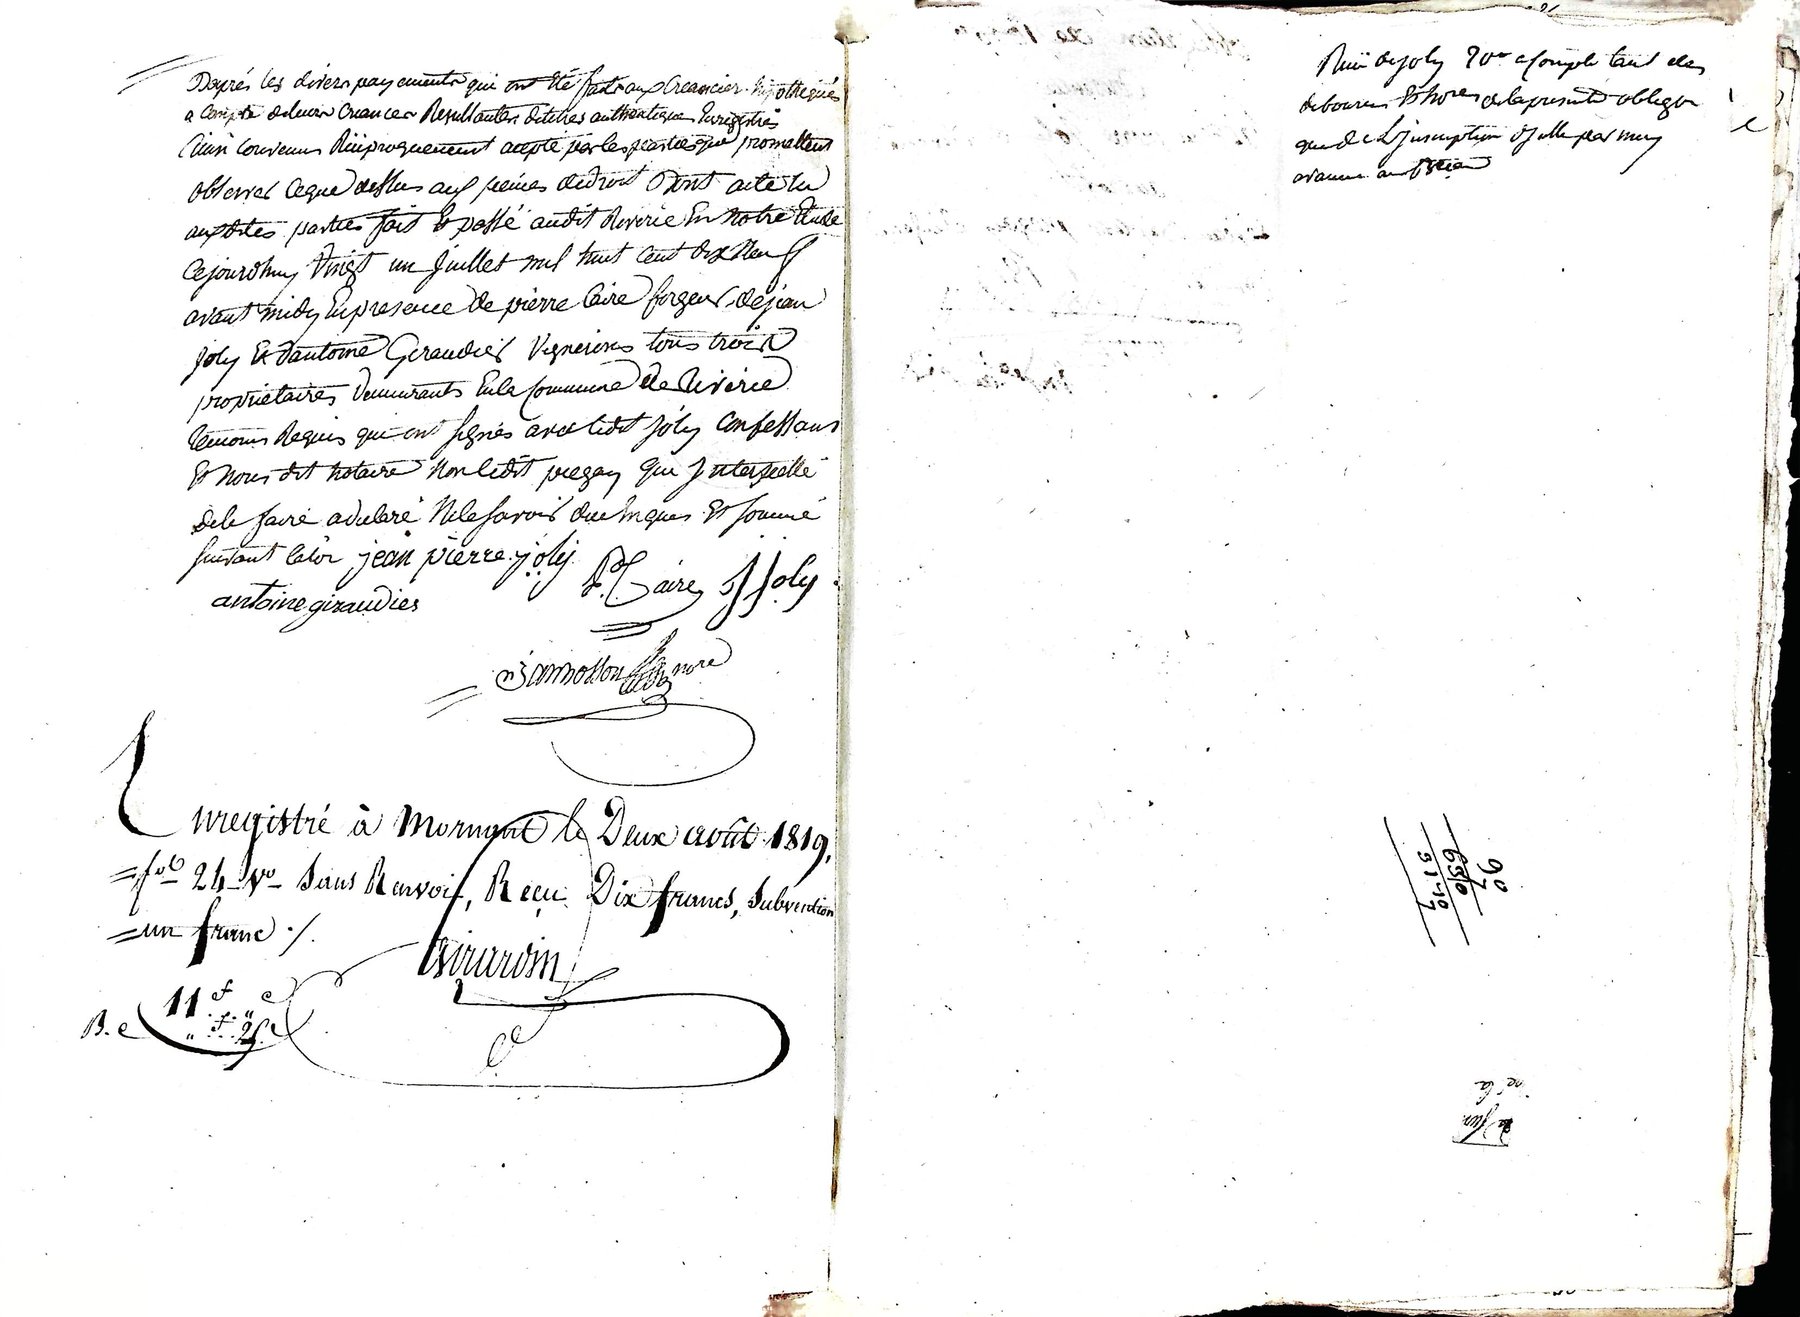 Daprés les divers payements qui ont été faits aux Creancier hypothequés
a compte de leurs Creances Resultantes de titres authentiques Enregistrés
ainsi convenus Réciproquement accepté par les parties qui promettent
observer ce que dessus aux peines de droit Dont acte lu
auxdites parties fait et passé audit Riverie En notre Etude
Cejourdhuy Vingt un Juillet mil huit cent dix Neuf
avant midy En presence de pierre Caire forgeur, de jean
Joly Et d'antoine Geraudier Vignerons tous trois
proprietaires demeurants En la Commune de Riverie
temoins Requis qui ont signés avec ledit Joly Confessant
Et Nous dit notaire Non ledit qui Interpellé
de le faire a declaré Ne le savoir de ce Enquis Et sommé
suivant la loi jean pierre joly
P. Caire JJoly
antoine giraudier
nore
Enregistré à Mornant le Deux août 1819,
fol. 24 Vo Sans Renvoi, Reçu Dix francs, Subvention
un franc ./.
Girardin
11 f. " c
" f. 25 c
Reçu de Joly 20 a Compte tant des
debourses Et hores de la presente obligon
que de L'Inscription
90
7
630